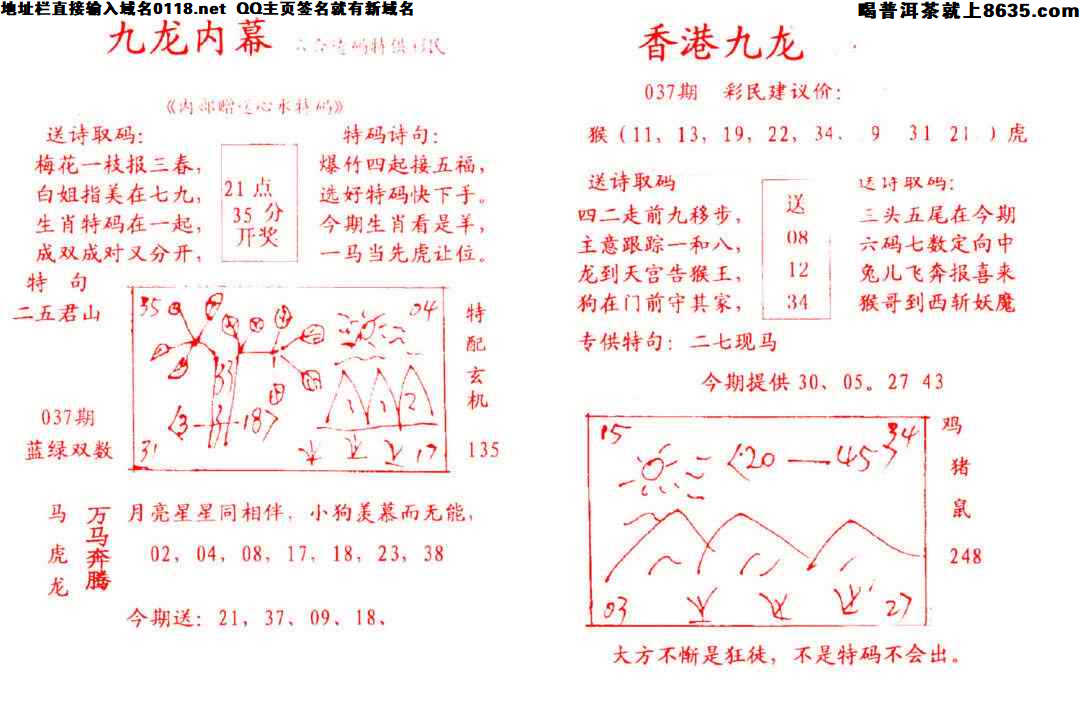 地址栏直接输入域名0118.net QQ主页签名就有新域名
喝普洱茶就上8635.com
九龙内幕
送诗取码:
梅花一枝报三春,
白姐指美在七九,
生肖特码在一起,
成双成对又分开,
21点
35分
开奖
特码诗句:
爆竹四起接五福,
选好特码快下手。
今期生肖看是羊,
一马当先虎让位。
特 句
二五君山
037期
蓝绿双数
35
04
33
1 1 2
13-3-187
31
17
特
配
玄
机
135
马
虎
龙
万马奔腾
月亮星星同相伴, 小狗羡慕而无能,
02, 04, 08, 17, 18, 23, 38
今期送: 21, 37、09、18、
香港九龙
037期 彩民建议价:
猴 (11, 13, 19, 22, 34、 9 31 21 ) 虎
送诗取码
四二走前九移步,
主意跟踪一和八,
龙到天宫告猴王,
狗在门前守其家,
送
08
12
34
送诗取码:
三头五尾在今期
六码七数定向中
兔儿飞奔报喜来
猴哥到西斩妖魔
专供特句: 二七现马
今期提供 30、05。27 43
15
34
20—45
03
27
鸡
猪
鼠
248
大方不惭是狂徒, 不是特码不会出。